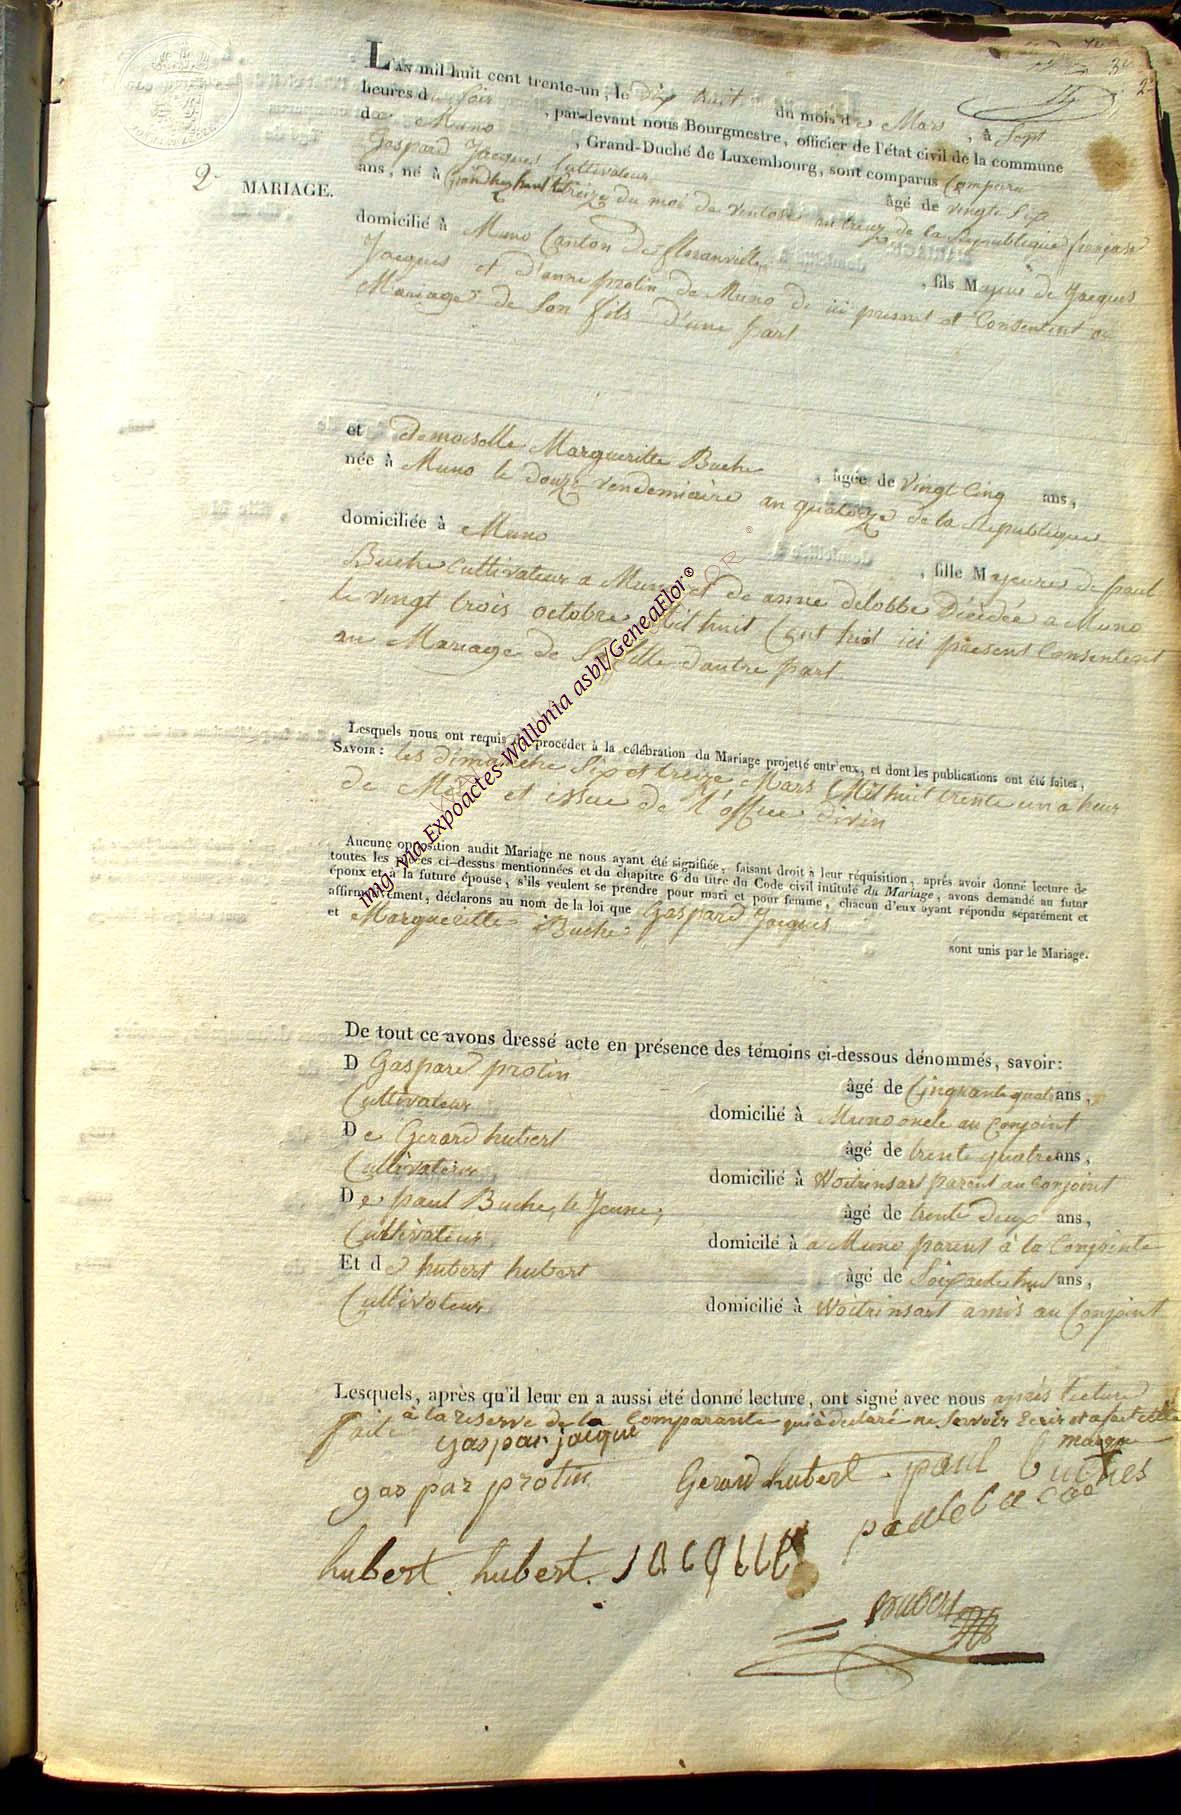 2e
MARIAGE.
L'AN mil huit cent trente-un, le dix huit du mois de Mars, à Sept
heures du Soir, par-devant nous Bourgmestre, officier de l'état civil de la commune
de Muno, Grand-Duché de Luxembourg, sont comparus Comparu
Gaspard Jacques Cultivateur âgé de vingt Six
ans, né à le treize du mois de ventose an treize de la Republique française
domicilié à Muno Canton de florenville, fils Majeur de Jacques
Jacques et d'anne protin de Muno de ici present et Consentent au
Mariage de Son fils d'une part
et demoiselle Margueritte Buche, âgée de vingt Cinq ans,
née à Muno le douze vendemiaire an quatorze de la Republique
domiciliée à Muno, fille Majeure de paul
Buche Cultivateur a Muno et de anne delobbe Décédée a Muno
le vingt trois octobre Mil huit Cent huit ici present Consentent
au Mariage de Sa fille d'autre part
Lesquels nous ont requis de procéder à la célébration du Mariage projetté entr'eux, et dont les publications ont été faites,
SAVOIR : les dimanche Six et treize Mars Mil huit trente un a heur
de Midi et issue de l'office divin
Aucune opposition audit Mariage ne nous ayant été signifiée, faisant droit à leur réquisition, après avoir donné lecture de
toutes les pièces ci-dessus mentionnées et du chapitre 6 du titre du Code civil intitulé du Mariage, avons demandé au futur
époux et à la future épouse, s'ils veulent se prendre pour mari et pour femme, chacun d'eux ayant répondu séparément et
affirmativement, déclarons au nom de la loi que Gaspard Jacques
et Margueritte Buche sont unis par le Mariage.
De tout ce avons dressé acte en présence des témoins ci-dessous dénommés, savoir :
D Gaspard protin âgé de Cinquante quatre ans,
Cultivateur domicilié à Muno oncle au Conjoint
De Gerard hubert âgé de trente quatre ans,
Cultivateur domicilié à Woitrinsart parent au Conjoint
De paul Buche, le Jeune, âgé de trente deux ans,
Cultivateur domicilé à a Muno parent à la Conjointe
Et de hubert hubert âgé de ans,
Cultivateur domicilié à Woitrinsart amis au Conjoint
Lesquels, après qu'il leur en a aussi été donné lecture, ont signé avec nous après lecture
faite à la reserve de la Comparante qui a declaré ne Savoir Ecrir et a fait cette
marque
gaspar jacque
gaspar protin Gerard hubert paul buches
hubert hubert. JACQUE
img via Expoactes-Wallonia asbl/GeneaFlor©